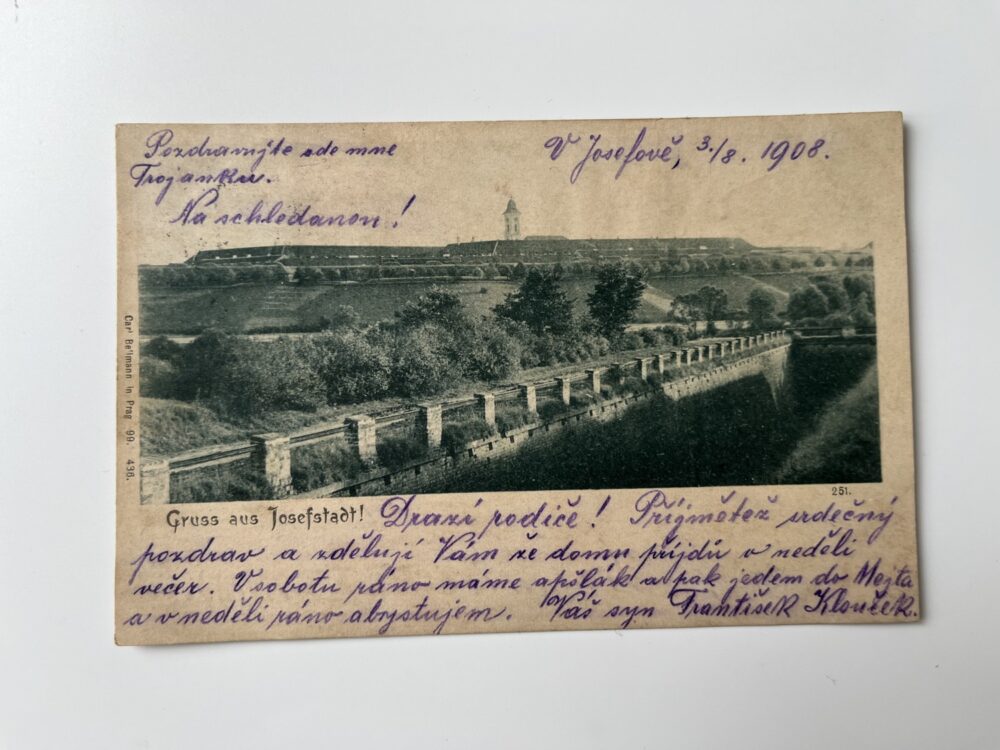 Pozdravujte ode mne
Trojanku.
Na schledanou!
V Josefově, 3./8. 1908.
Carl Bellmann in Prag 99. 438.
251.
Gruss aus Josefstadt!
Drazí rodiče! Přijmětež srdečný
pozdrav a zděluji Vám že domu přijdu v neděli
večer. V sobotu ráno máme apšlák a pak jedem do Mejta
a v neděli ráno abrystujem. Váš syn František Klouček.